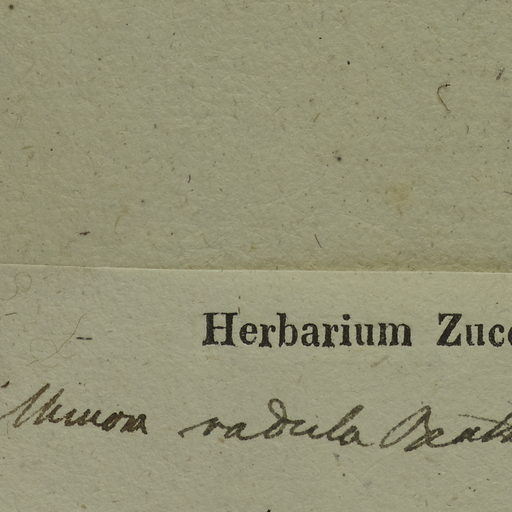 Herbarium Zucc
Mimosa radula Benth